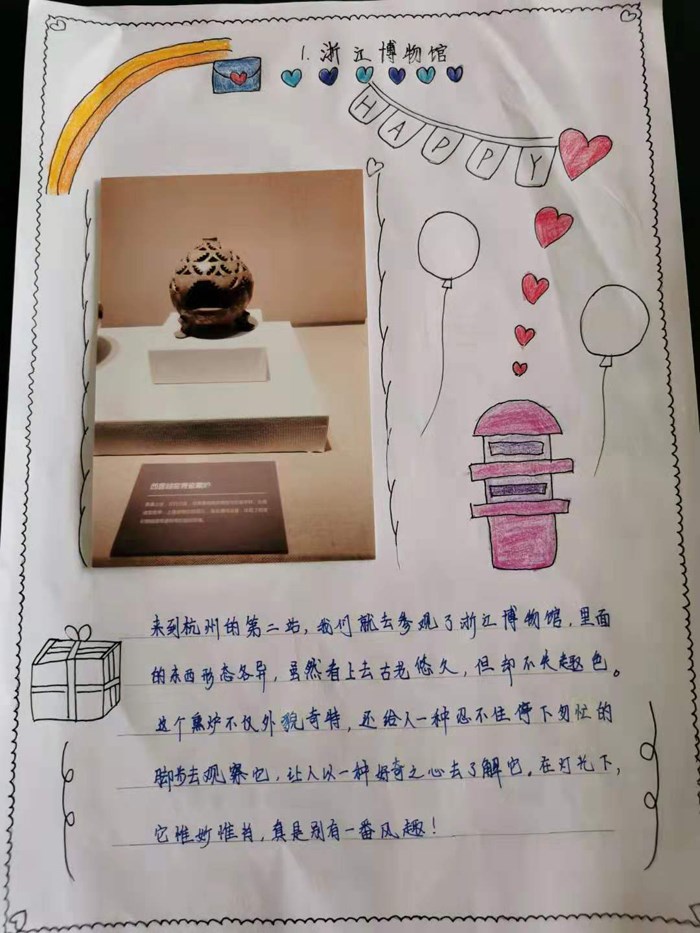 1.浙江博物馆
HAPPY
来到杭州的第二站，我们就去参观了浙江博物馆，里面
的东西形态各异，虽然看上去古老悠久，但却不失趣色。
这个熏炉不仅外貌奇特，还给人一种忍不住停下匆忙的
脚步去观察它，让人以一种好奇之心去了解它。在灯光下，
它惟妙惟肖，真是别有一番风趣！